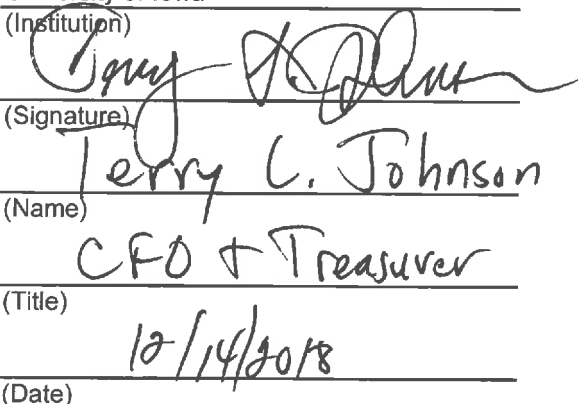 (Institution)
(Signature)
Terry L. Johnson
(Name)
CFO + Treasurer
(Title)
12/14/2018
(Date)